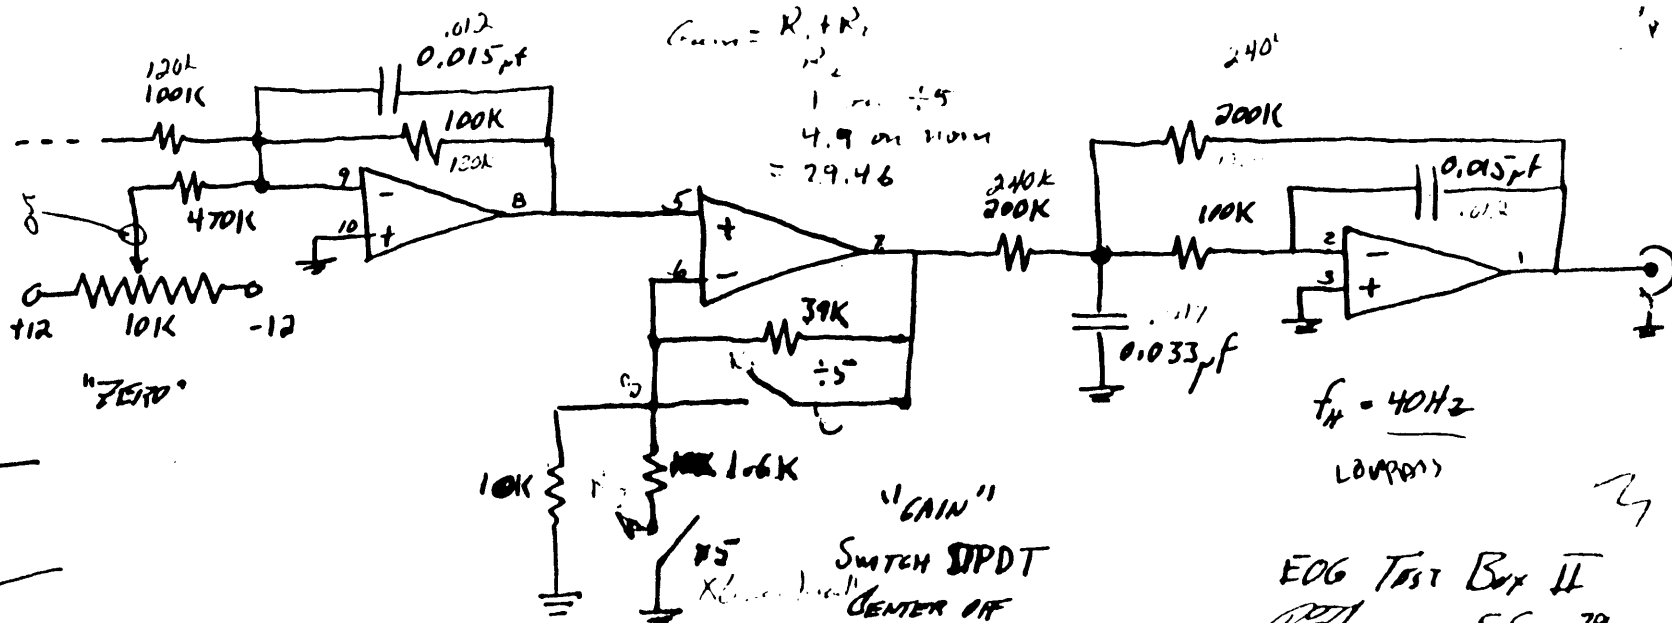 .012
0.015µf
120K
100K
100K
120K
470K
9
10
8
-
+
+12
10K
-12
"ZERO"
Gain =
÷5
4.9 on nom
= 29.46
5
6
7
+
-
39K
÷5
10K
1.6K
x5
"GAIN"
SWITCH DPDT
CENTER OFF
240K
200K
240K
200K
100K
0.015µf
.012
2
3
1
-
+
0.033µf
fH = 40Hz
LOWPASS
EOG TEST BOX II